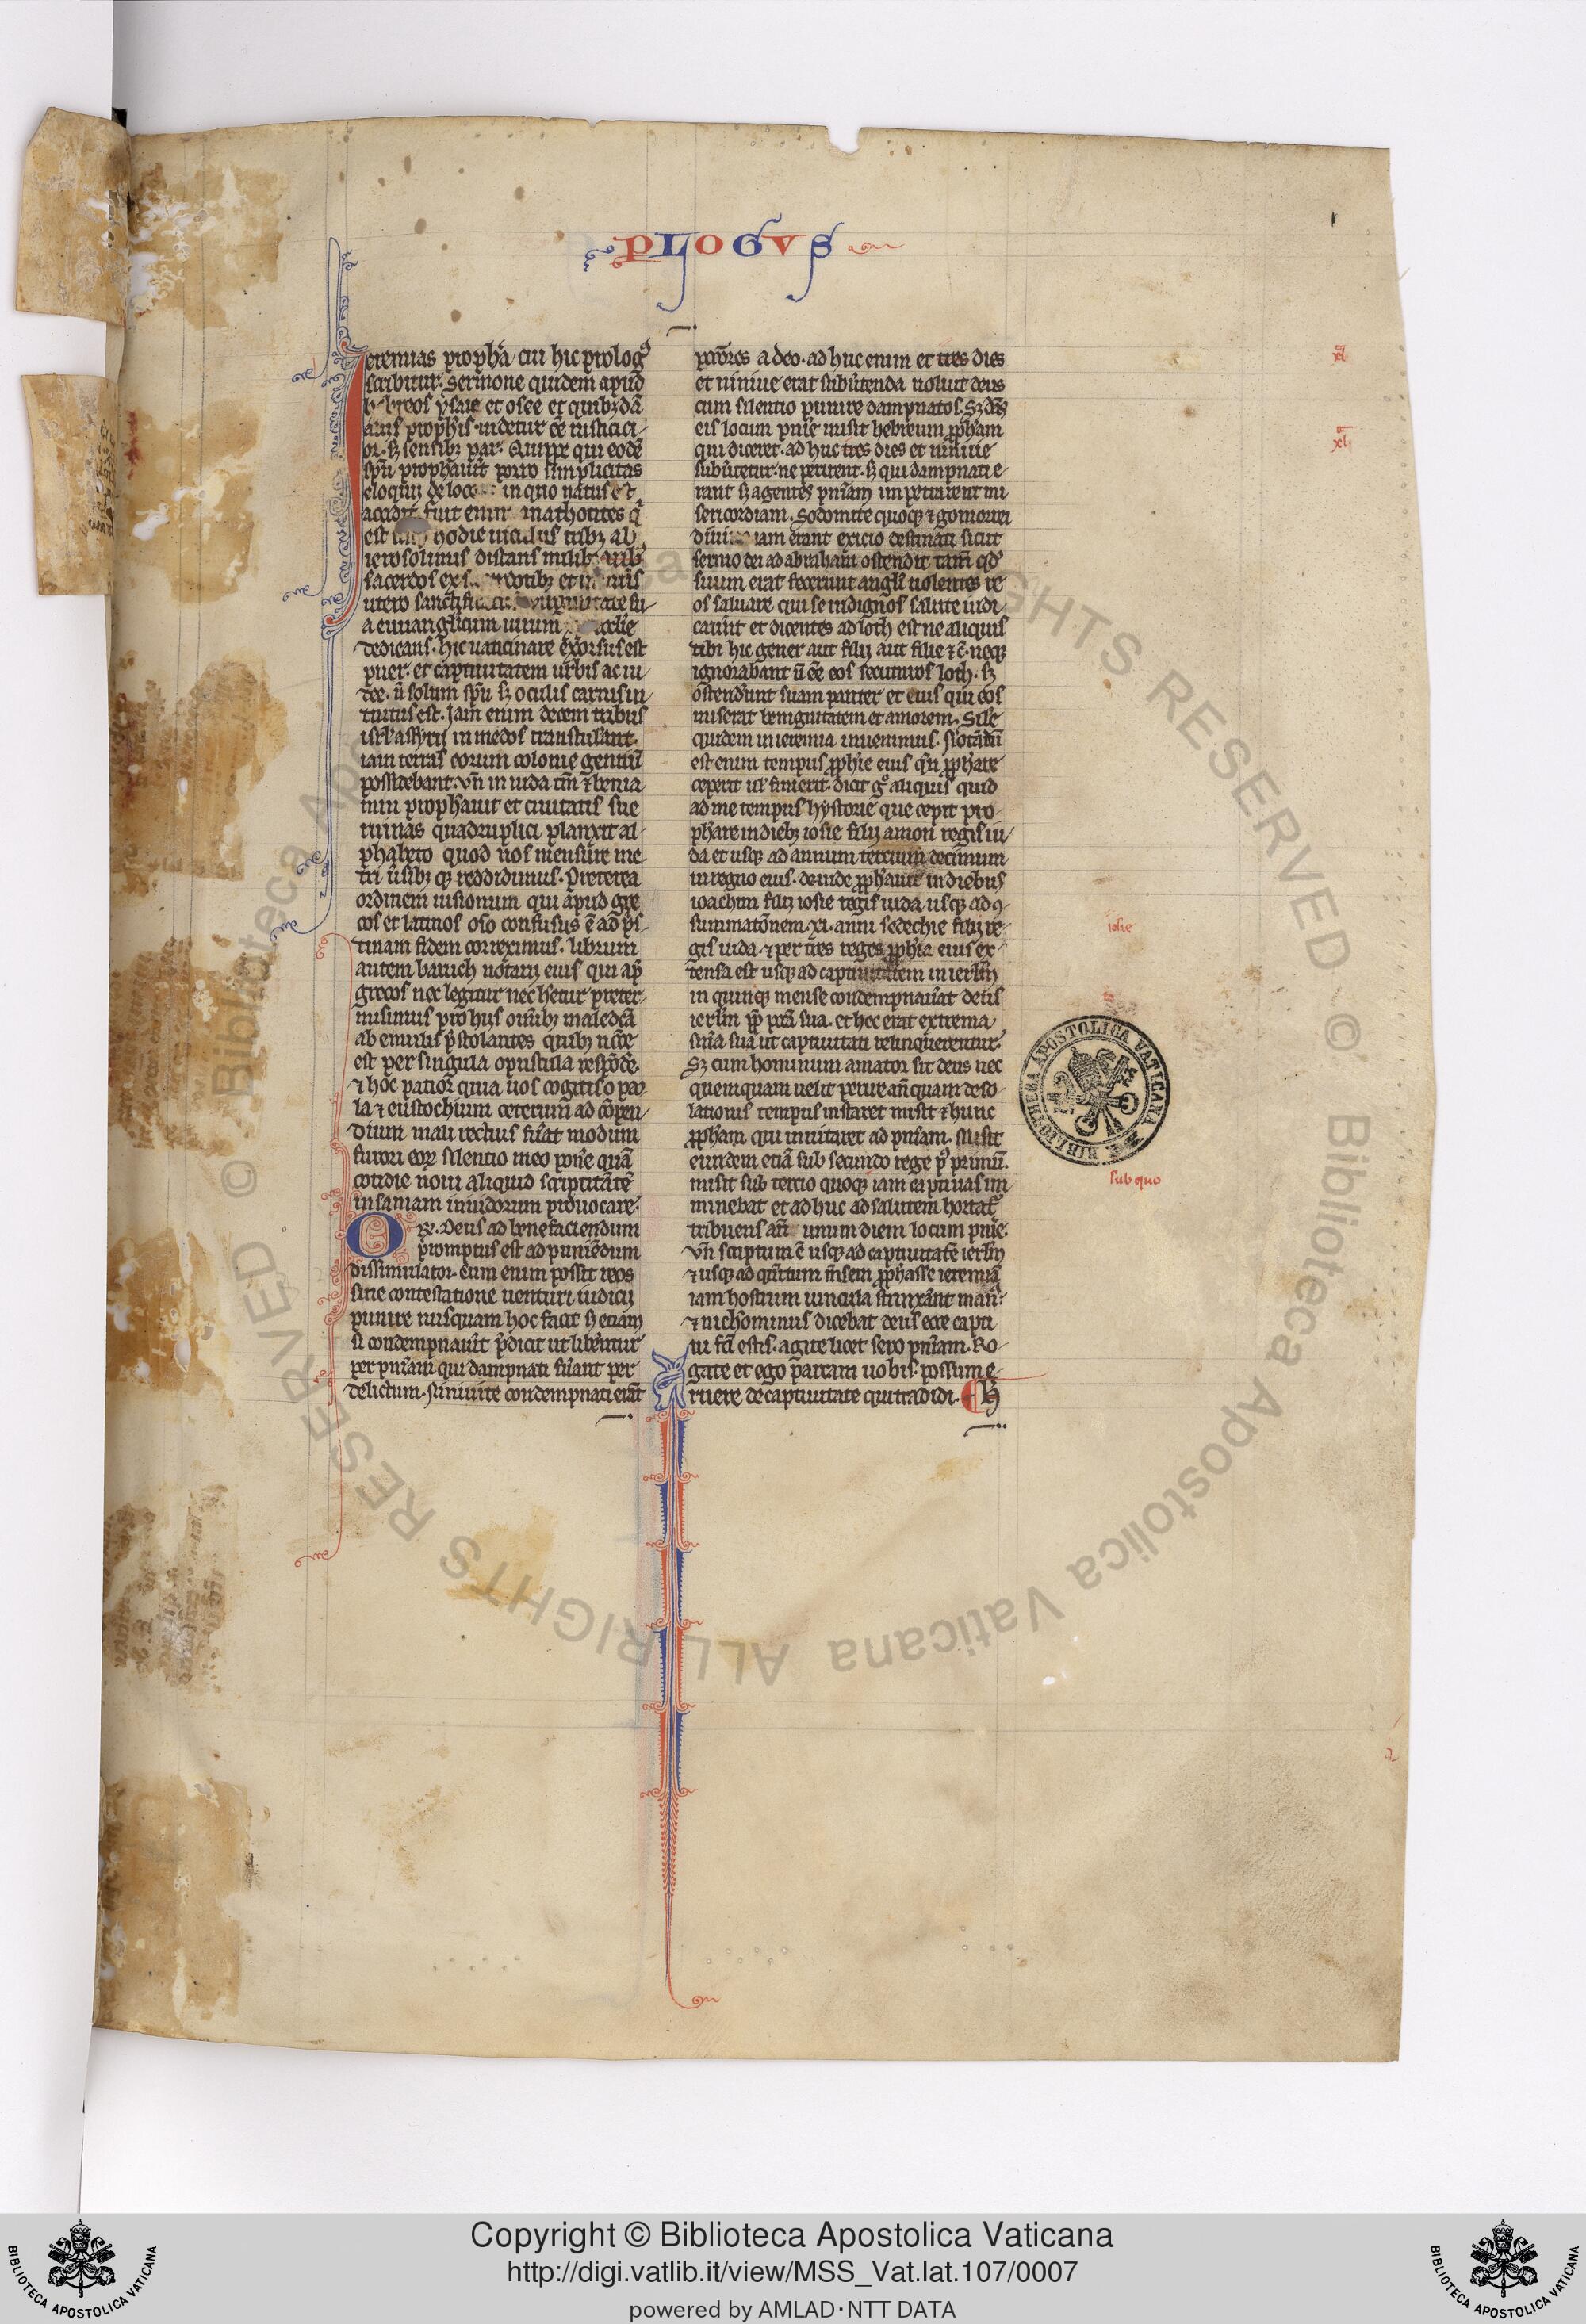 PLOGVS
Ieremias propħa cui hic prologꝰ
scribitur. Sermone quidem apud
hebreos ysaie et osee et quibꝫdā
propħis uidetur ēē rustici
or. sꝫ sensibꝫ par. Quippe qui eodē
spū prophauit porro simplicitas
eloquii de loco in quo natus est
accidit fuit enim anathotites q̄
est hodie uiculus tribꝫ ab
ierosolimis distans milibꝫ
sacerdos ex sacerdotibꝫ et in
utero uirginitate su
a euuanglicum uirum
dedicans. hic uaticinare exorsus est
puer. et captiuitatem urbis ac iu
dee. ñ solum spū sꝫ oculis carnis in
tuitus est. Jam enim decem tribus
isrl' assyrii in medos transtulant.
iam terras eorum colonie gentiū
possidebant. Vñ in iuda tm̄ ⁊ benia
min prophauit et ciuitatis sue
ruinas quadruplici planxit al
phabeto quod nos mensure me
tri ûsibꝫ qꝫ reddidimus. Preterea
ordinem uisionum qui apud gre
cos et latinos oīo confusus ē ad p̄s
tinam fidem correximus. librum
autem baruch notarii eius qui ap̄
grecos nec legitur nec hetur preter
misimus pro hiis omībꝫ maledcā
ab emulis p̄stolantes quibꝫ ncē̄e
est per singula opuscula respōdē.
⁊ hoc patior quia uos cogitis o pau
la ⁊ eustochium ceterum ad cōpen
dium mali rectius fuat modum
furori eoꝝ silentio meo ponē quā
cotidie noui aliquid scriptitātē
insaniam inuidorum prouocare.
Oꝝ. Deus ad benefaciendum
promptus est ad puniēdum
dissimulator. cum enim possit reos
sine contestatione uenturi iudicii
punire nusquam hoc facit sꝫ etiam
si condempnauit p̄dicit ut liberentur
per pnīam qui dampnati fuant per
delictum. Niniuite condempnati erāt
peccōres a deo. ad huc enim et tres dies
et niniue erat subuertenda noluit deus
cum silentio punire dampnatos. Sꝫ dās
eis locum pnīe misit hebreum ꝓpham
qui diceret. ad huc tres dies et niniue
subuertetur. ne perirent. sꝫ qui dampnati e
rant sꝫ agentes pnīam impetrarent mi
sericordiam. Sodomite quoqꝫ ⁊ gomorrei
iam erant exicio destinati sicut
sermo dei ad abraham ostendit tam̄ qd'
suum erat fecerunt angl'i uolentes re
os saluare qui se indignos salute iudi
caūnt et dicentes ad loth est ne aliquis
tibi hic gener aut filii aut filie ⁊ c̄. neqꝫ
ignorabant ñ ēē eos secuturos loth. sꝫ
ostendunt suam pariter et eius qui eos
miserat benignitatem et amorem. Sil'e
quidem in ieremia inuenimus. Notādū
est enim tempus ꝓphie eius qn̄ ꝓphare
ceperit ul' finierit. dicit gͦ aliquis quid
ad me tempus hystorie que cepit pro
phare in diebꝫ iosie filii amon regis iu
da et usqꝫ ad annum tercium decimum
in regno eius. deinde ꝓphauit in diebus
ioachim filii iosie regis iuda usqꝫ ad ꝯ
summatōnem .xi. anni sedechie filii re
gis iuda. ⁊ per tres reges ꝓphia eius ex
tensa est usqꝫ ad captiuitatem in ierlm̄
in quinqꝫ mense condempnauat deus
ierlm̄ ꝓp̄ pctā sua. et hec erat extrema
snīa sua ut captiuitati relinquerentur.
Sꝫ cum hominum amator sit deus nec
quemquam uelit perire an̄quam deso
lationis tempus instaret misit ⁊ hunc
ꝓpham qui inuitaret ad pnīam. Misit
eundem etiā sub secundo rege pꝰ primū.
misit sub tercio quoqꝫ iam captiuitas im
minebat et ad huc ad salutem hortatʳ
tribuens an̄ unum diem locum pnīe.
Vn̄ scriptum ē usqꝫ ad captiuitatē ierlm̄
⁊ usqꝫ ad qīntum m̄sem ꝓphasse ieremiā
iam hostium uincula strinxānt man̄.
⁊ nichominus dicebat deus ecce capti
ui fcī estis. agite licet sero pnīam. Ro
gate et ego p̄parcam uobis. possum e
ruere de captiuitate qui tradidi.
iosie
sub quo
BIBLIOTHECA APOSTOLICA VATICANA
© Biblioteca Apostolica Vaticana ALL RIGHTS RESERVED
© Biblioteca Apostolica Vaticana ALL RIGHTS RESERVED
Copyright © Biblioteca Apostolica Vaticana
http://digi.vatlib.it/view/MSS_Vat.lat.107/0007
powered by AMLAD·NTT DATA
BIBLIOTECA APOSTOLICA VATICANA
BIBLIOTECA APOSTOLICA VATICANA